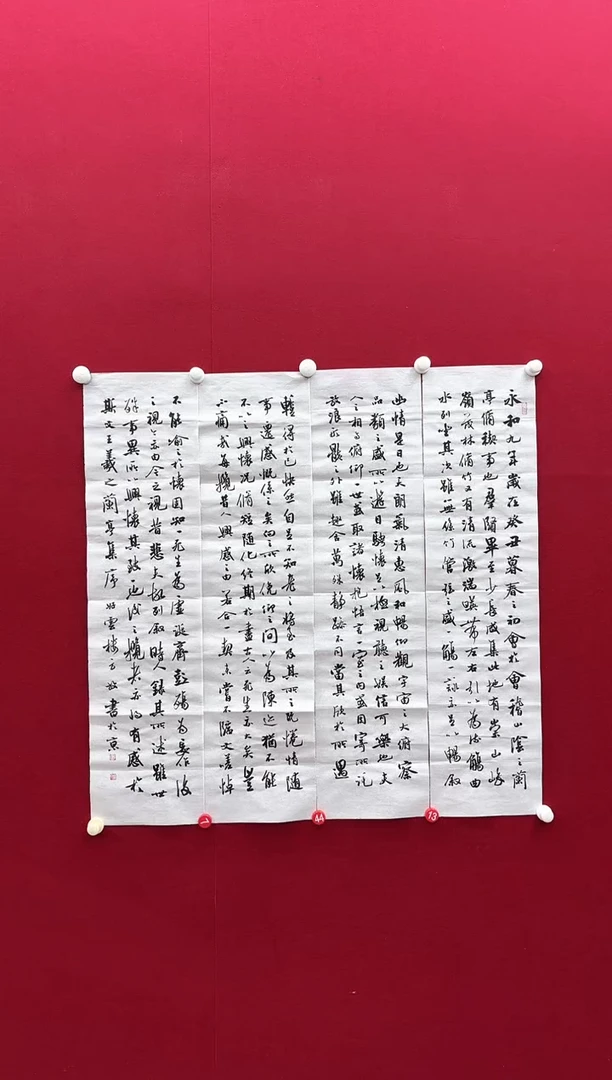 永和九年歲在癸丑暮春之初會於會稽山陰之蘭
亭脩稧事也羣賢畢至少長咸集此地有崇山峻
嶺茂林脩竹又有清流激湍暎帶左右引以為流觴曲
水列坐其次雖無絲竹管弦之盛一觴一詠亦足以暢叙
幽情是日也天朗氣清惠風和暢仰觀宇宙之大俯察
品類之盛所以遊目騁懷足以極視聽之娛信可樂也夫
人之相與俯仰一世或取諸懷抱悟言一室之內或因寄所託
放浪形骸之外雖趣舍萬殊靜躁不同當其欣於所遇
暫得於己快然自足不知老之將至及其所之既惓情隨
事遷感慨係之矣向之所欣俛仰之間以為陳迹猶不能
不以之興懷況脩短隨化終期於盡古人云死生亦大矣豈
不痛哉每攬昔人興感之由若合一契未嘗不臨文嗟悼
不能喻之於懷固知一死生為虛誕齊彭殤為妄作後
之視今亦由今之視昔悲夫故列叙時人錄其所述雖世
殊事異所以興懷其致一也後之攬者亦將有感於
斯文王羲之蘭亭集序 雲樓 書於京
7
44
13